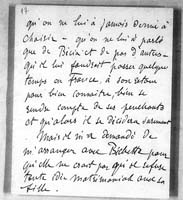 17
qu'on ne lui a jamais donné à
choisir — qu'on ne lui a parlé
que de Bixin et de pas d'autres —
qu'il lui faudrait passer quelque
temps en France, à son retour
pour bien connaître, bien se
rendre compte de ses penchants
et qu'alors il se décidera sûrement
Mais il m'a demandé de
m'arranger avec Bichette pour
qu'elle ne croit pas qu'il refuse
toute idée matrimoniale avec sa
fille.